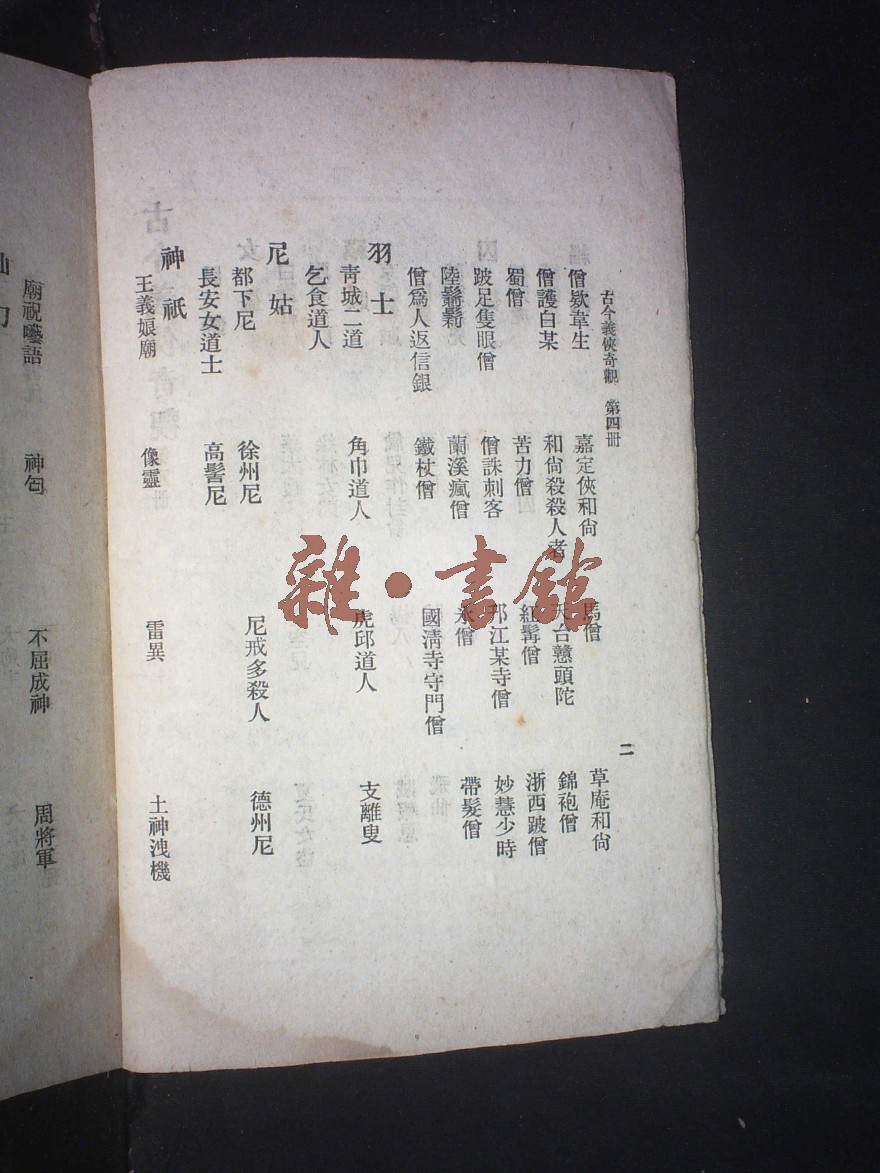 古今義俠奇觀 第四冊 二
僧欺韋生 嘉定俠和尙 馬僧 草庵和尙
僧護白某 和尙殺殺人者 天台戇頭陀 錦袍僧
蜀僧 苦力僧 紅髯僧 浙西跛僧
跛足隻眼僧 僧誅刺客 邗江某寺僧 妙慧少時
陸鬍鬎 蘭溪瘋僧 僧 帶髮僧
僧爲人返信銀 鐵杖僧 國淸寺守門僧
羽士
靑城二道 角巾道人 虎邱道人 支離叟
乞食道人
尼姑
都下尼 徐州尼 尼戒多殺人 德州尼
長安女道士 高髻尼
神祇
王義娘廟 像靈 雷異 土神洩機
廟祝囈語 神匄 不屈成神 周將軍
雜·書館